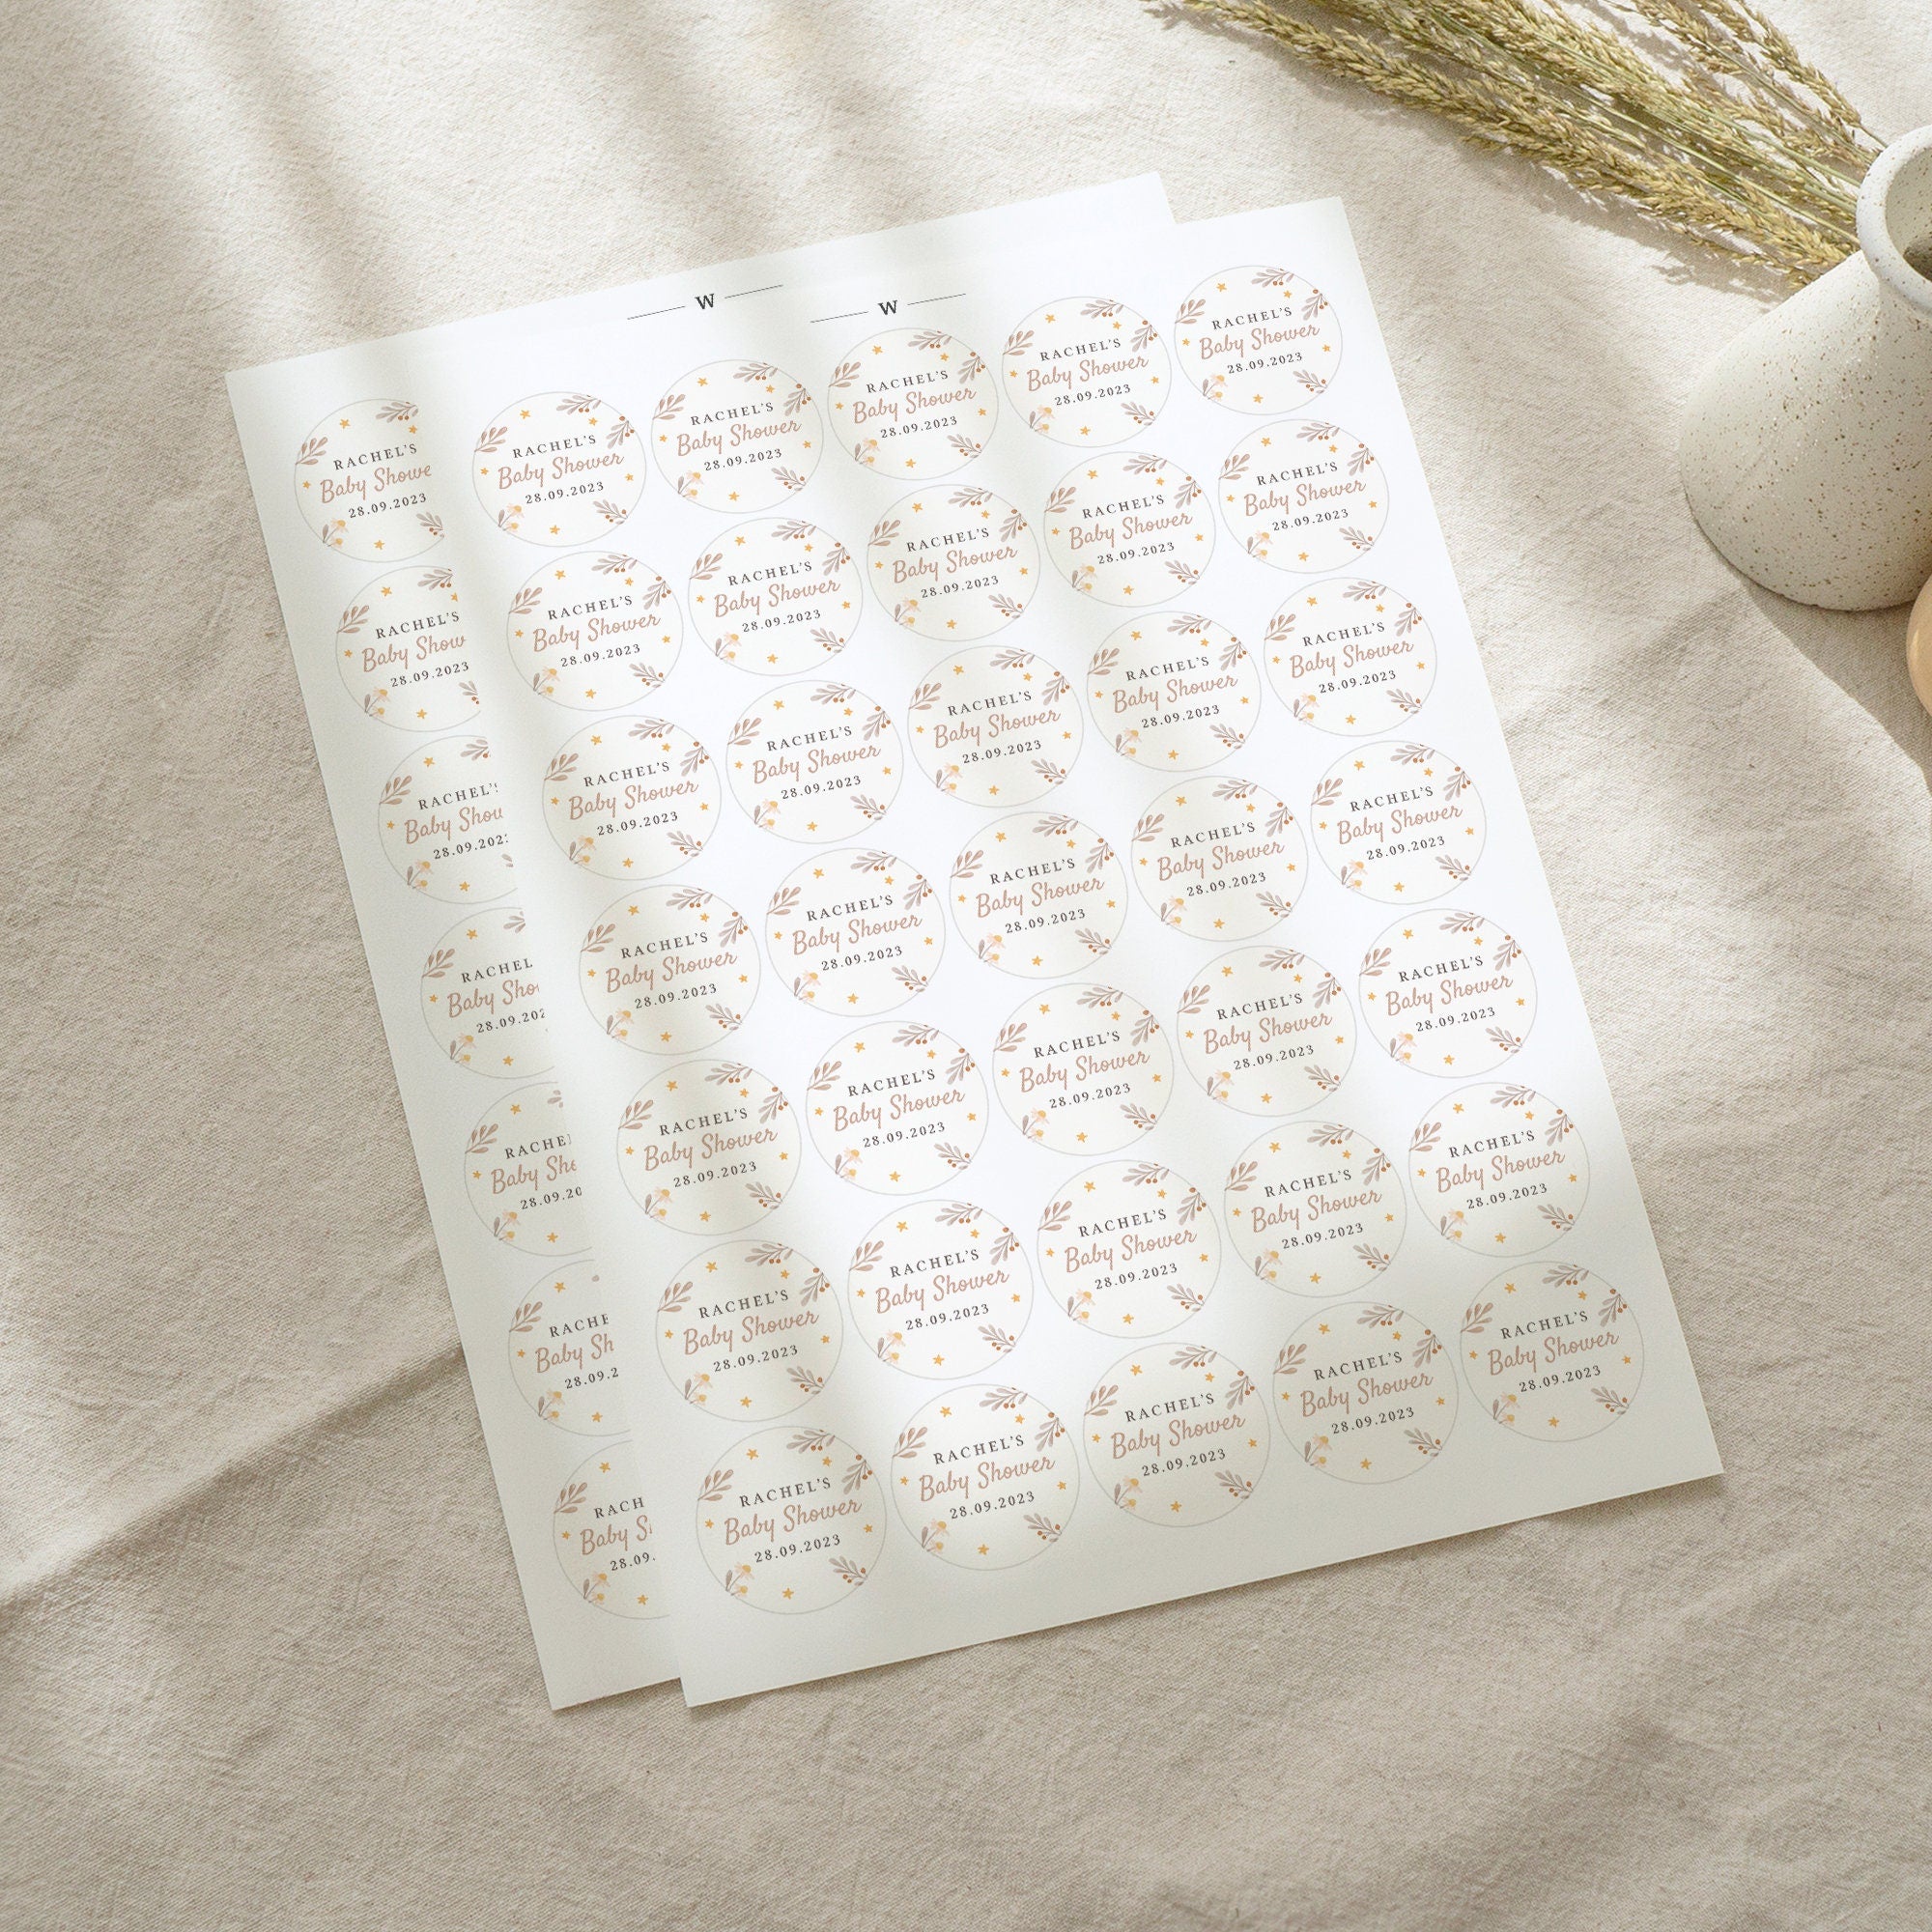 W
W
RACHEL'S
Baby Showe
28.09.2023
RACHEL'S
Baby Show
28.09.2023
RACHEL'
Baby Sho
28.09.202
RACHEL
Baby Sho
28.09.202
RACHE
Baby Sh
28.09.20
RACHE
Baby Sh
28.09.2
RACH
Baby S
28.09.
RACHEL'S
Baby Shower
28.09.2023
RACHEL'S
Baby Shower
28.09.2023
RACHEL'S
Baby Shower
28.09.2023
RACHEL'S
Baby Shower
28.09.2023
RACHEL'S
Baby Shower
28.09.2023
RACHEL'S
Baby Shower
28.09.2023
RACHEL'S
Baby Shower
28.09.2023
RACHEL'S
Baby Shower
28.09.2023
RACHEL'S
Baby Shower
28.09.2023
RACHEL'S
Baby Shower
28.09.2023
RACHEL'S
Baby Shower
28.09.2023
RACHEL'S
Baby Shower
28.09.2023
RACHEL'S
Baby Shower
28.09.2023
RACHEL'S
Baby Shower
28.09.2023
RACHEL'S
Baby Shower
28.09.2023
RACHEL'S
Baby Shower
28.09.2023
RACHEL'S
Baby Shower
28.09.2023
RACHEL'S
Baby Shower
28.09.2023
RACHEL'S
Baby Shower
28.09.2023
RACHEL'S
Baby Shower
28.09.2023
RACHEL'S
Baby Shower
28.09.2023
RACHEL'S
Baby Shower
28.09.2023
RACHEL'S
Baby Shower
28.09.2023
RACHEL'S
Baby Shower
28.09.2023
RACHEL'S
Baby Shower
28.09.2023
RACHEL'S
Baby Shower
28.09.2023
RACHEL'S
Baby Shower
28.09.2023
RACHEL'S
Baby Shower
28.09.2023
RACHEL'S
Baby Shower
28.09.2023
RACHEL'S
Baby Shower
28.09.2023
RACHEL'S
Baby Shower
28.09.2023
RACHEL'S
Baby Shower
28.09.2023
RACHEL'S
Baby Shower
28.09.2023
RACHEL'S
Baby Shower
28.09.2023
RACHEL'S
Baby Shower
28.09.2023